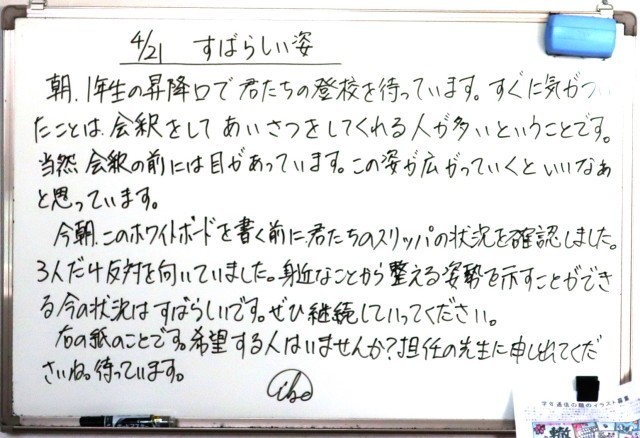 4/21 すばらしい姿
朝、1年生の昇降口で君たちの登校を待っています。すぐに気がつい
たことは、会釈をしてあいさつをしてくれる人が多いということです。
当然、会釈の前には目があっています。この姿が広がっていくといいなぁ
と思っています。
今朝、このホワイトボードを書く前に、君たちのスリッパの状況を確認しました。
3人だけ反対を向いていました。身近なことから整える姿勢を示すことができ
る今の状況はすばらしいです。ぜひ継続していってください。
右の紙のことです。希望する人はいませんか?担任の先生に申し出てくだ
さいね。待っています。
ibe
学年通信の題のイラスト募集
轍